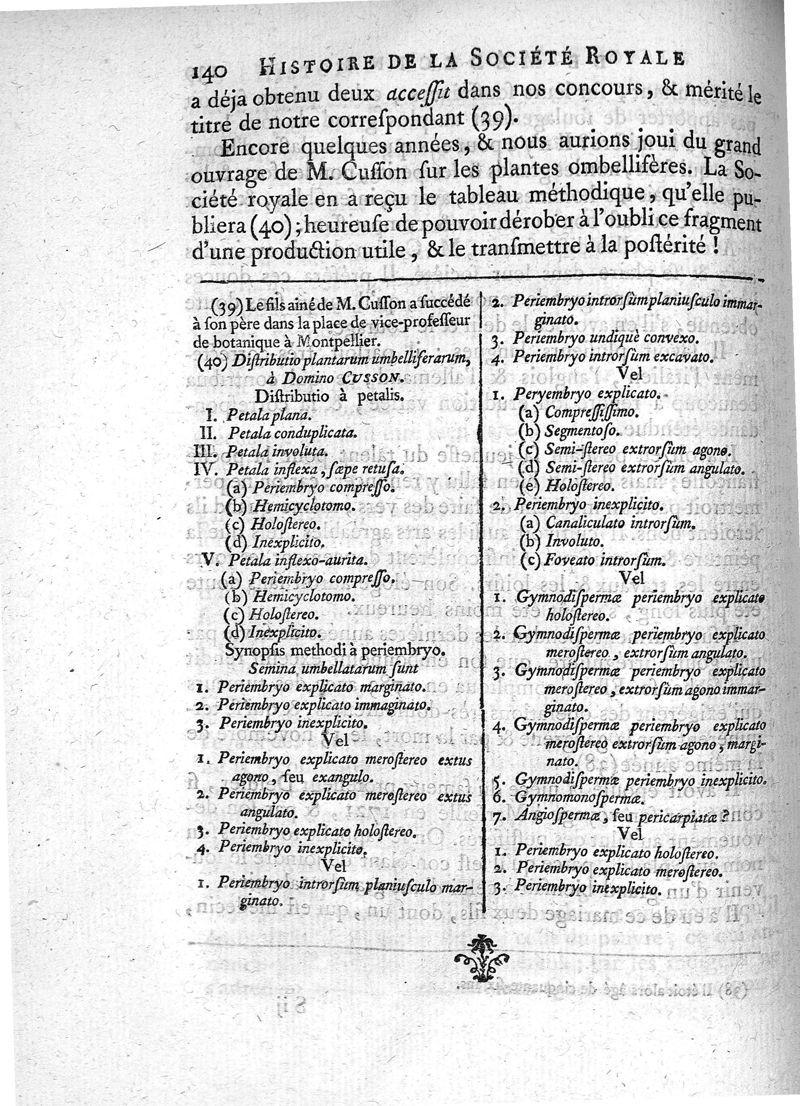 140 HISTOIRE DE LA SOCIÉTÉ ROYALE
a déja obtenu deux acceſſit dans nos concours, & mérité le
titre de notre correſpondant (39).
Encore quelques années, & nous aurions joui du grand
ouvrage de M. Cuſſon ſur les plantes ombellifères. La So-
ciété royale en a reçu le tableau méthodique, qu'elle pu-
bliera (40); heureuſe de pouvoir dérober à l'oubli ce fragment
d'une production utile, & le tranſmettre à la poſtérité !
(39) Le fils aîné de M. Cuſſon a ſuccédé
à ſon père dans la place de vice-profeſſeur
de botanique à Montpellier.
(40) Diſtributio plantarum umbelliferarum,
à Domino CUSSON.
Diſtributio à petalis.
I. Petala plana.
II. Petala conduplicata.
III. Petala involuta.
IV. Petala inflexa, ſæpe retuſa.
(a) Periembryo compreſſo.
(b) Hemicyclotomo.
(c) Holoſtereo.
(d) Inexplicito.
V. Petala inflexo-aurita.
(a) Periembryo compreſſo.
(b) Hemicyclotomo.
(c) Holoſtereo.
(d) Inexplicito.
Synopſis methodi à periembryo.
Semina umbellatarum ſunt
1. Periembryo explicato marginato.
2. Periembryo explicato immaginato.
3. Periembryo inexplicito.
Vel
1. Periembryo explicato meroſtereo extus
agono, ſeu exangulo.
2. Periembryo explicato meroſtereo extus
angulato.
3. Periembryo explicato holoſtereo.
4. Periembryo inexplicito.
Vel
1. Periembryo introrſum planiuſculo mar-
ginato.
2. Periembryo introrſum planiuſculo immar-
ginato.
3. Periembryo undiquè convexo.
4. Periembryo introrſum excavato.
Vel
1. Peryembryo explicato.
(a) Compreſſiſſimo.
(b) Segmentoſo.
(c) Semi-ſtereo extrorſum agono.
(d) Semi-ſtereo extrorſum angulato.
(e) Holoſtereo.
2. Periembryo inexplicito.
(a) Canaliculato introrſum.
(b) Involuto.
(c) Foveato introrſum.
Vel
1. Gymnodiſpermæ periembryo explicato
holoſtereo.
2. Gymnodiſpermæ periembryo explicato
meroſtereo, extrorſum angulato.
3. Gymnodiſpermæ periembryo explicato
meroſtereo, extrorſum agono immar-
ginato.
4. Gymnodiſpermæ periembryo explicato
meroſtereo extrorſum agono, margi-
nato.
5. Gymnodiſpermæ periembryo inexplicito.
6. Gymnomonoſpermæ.
7. Angioſpermæ, ſeu pericarpiatæ ?
Vel
1. Periembryo explicato holoſtereo.
2. Periembryo explicato meroſtereo.
3. Periembryo inexplicito.